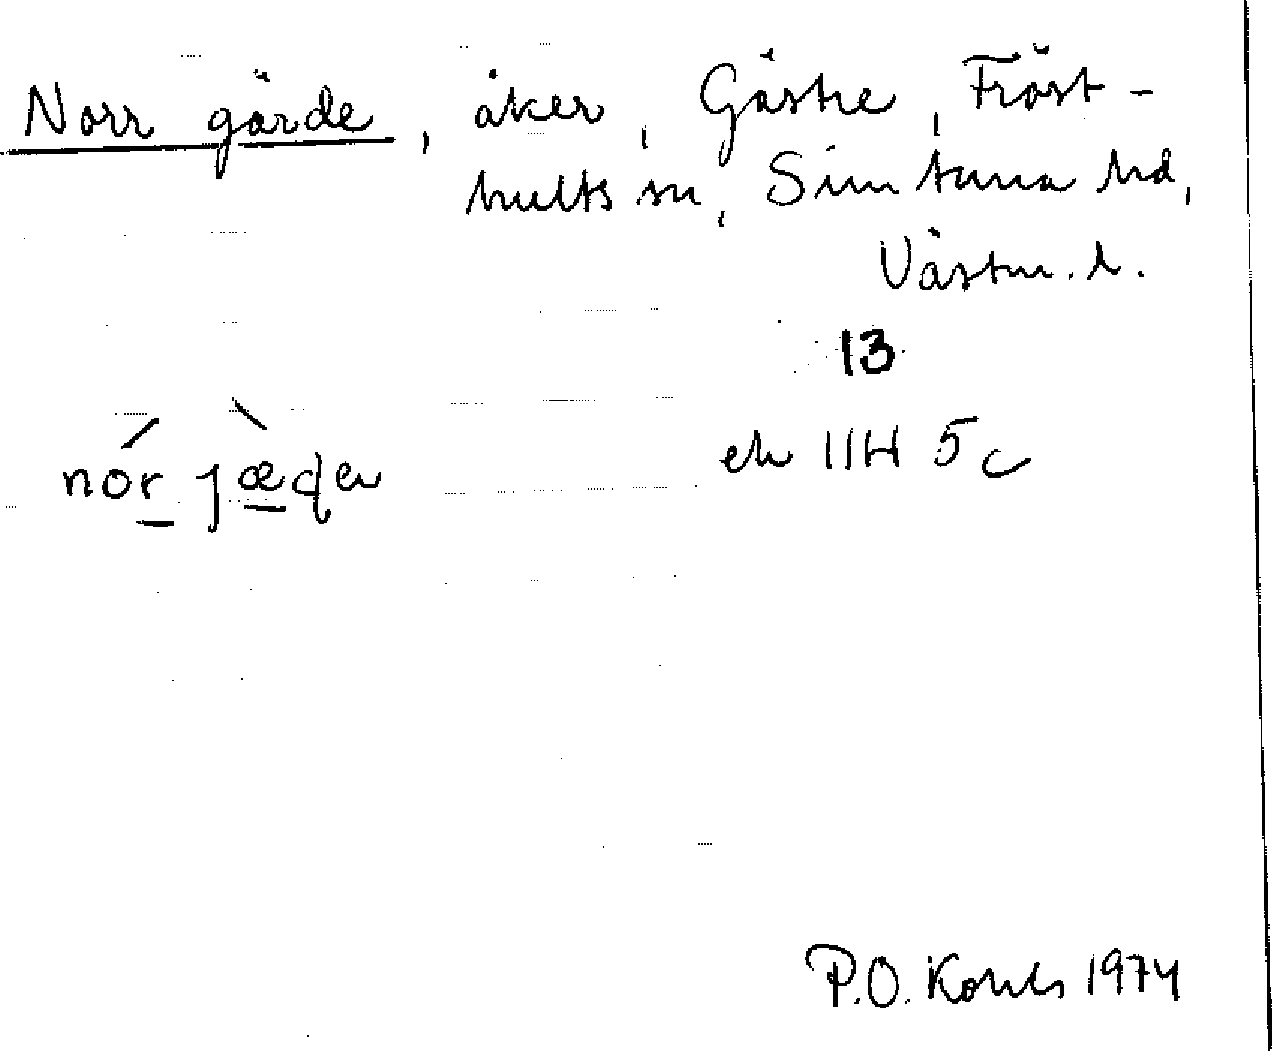 Norr gärde, åker, Gästre, Fröst-
hults sn, Simtuna hd,
Västm. l.
13
ek 11H 5c
P.O. 1974